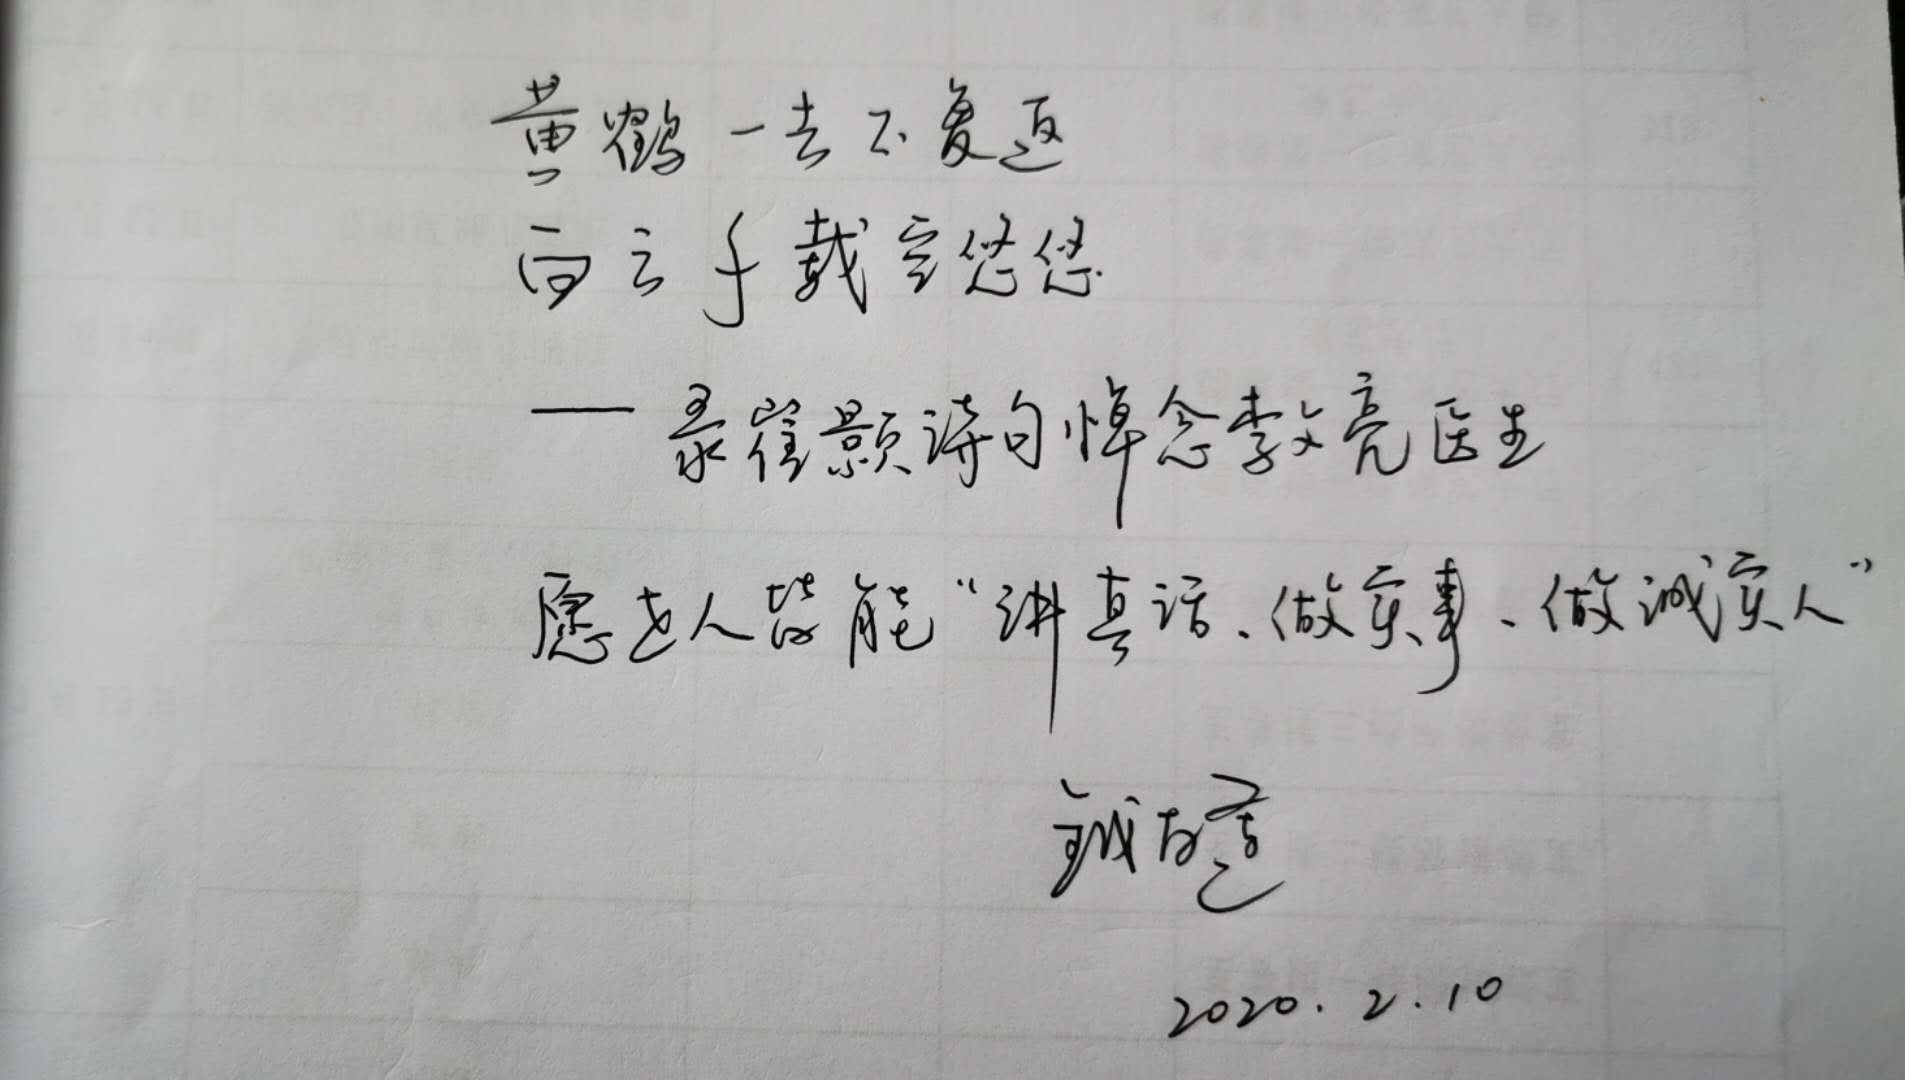 黄鹤一去不复返
白云千载空悠悠
——录崔颢诗句悼念李文亮医生
愿世人皆能“讲真话、做实事、做诚实人”
2020.2.10